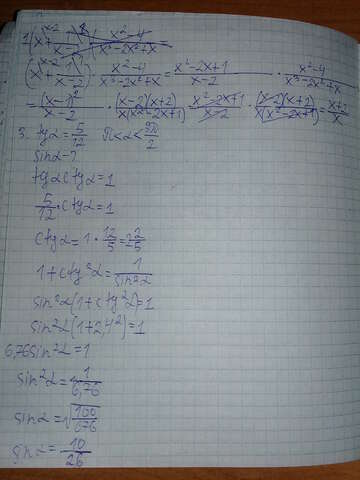 (x + 1/(x-2)) · (x²-4)/(x³-2x²+x) = (x²-2x+1)/(x-2) · (x²-4)/(x³-2x²+x)
= (x-1)²/(x-2) · (x-2)(x+2)/(x(x²-2x+1)) = (x²-2x+1)/(x-2) · (x-2)(x+2)/(x(x²-2x+1)) = (x+2)/x
3. tgα = 5/12 π<α<3π/2
sinα - ?
tgα ctgα = 1
5/12 · ctgα = 1
ctgα = 1 · 12/5 = 2 2/5
1 + ctg²α = 1/sin²α
sin²α(1 + ctg²α) = 1
sin²α(1 + 2,4²) = 1
6,76 sin²α = 1
sin²α = 1/6,76
sinα = √(100/676)
sinα = 10/26